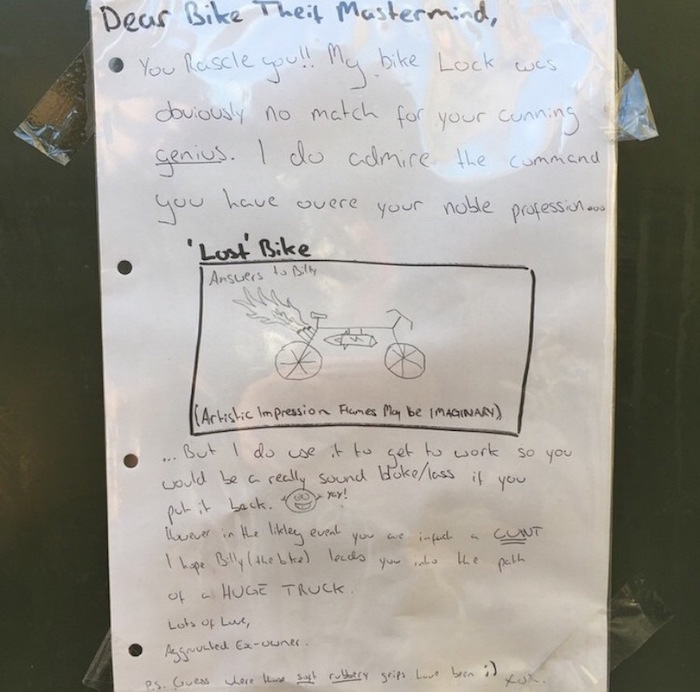 Dear Bike Theif Mastermind,
You Rascle you!! My bike Lock was
obviously no match for your cunning
genius. I do admire the command
you have overe your noble profession...
'Lost' Bike
Answers to Billy
(Artistic Impression Flames May be IMAGINARY)
... But I do use it to get to work so you
would be a really sound bloke/lass if you
put it back. Yay!
However in the likley event you are infact a CUNT
I hope Billy (the bike) leads you into the path
of a HUGE TRUCK.
Lots of Love,
Aggravated Ex-owner.
P.S. Guess where those soft rubbery grips have been ;) xox